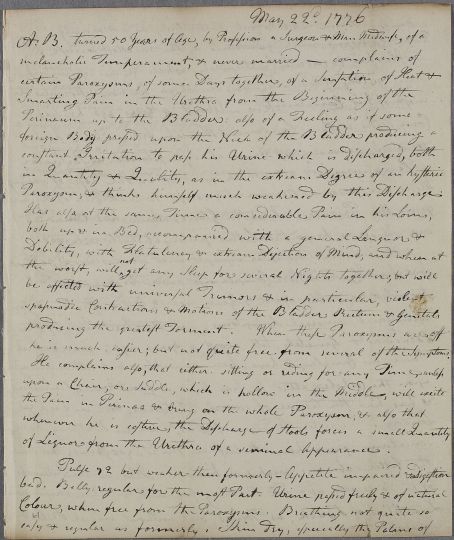 May 22d. 1776
A. B. turned 50 Years of Age, by Profession a Surgeon & Man Midwife, of a
melancholic Temperament, & never married — complains of
certain Paroxysms, of some Days together, of a Sensation, of Heat &
Smarting Pain in the Urethra from the Beginning of the
Perineum up to the Bladder, also of a Feeling as if some
foreign Body pressed upon the Neck of the Bladder producing a
constant Irritation to pass his Urine which is discharged, both
in Quantity & Quality, as in the extream Degrees of an hysteric
Paroxysm, & thinks himself much weakened by this Discharge
Has also at the same Time a considerable Pain in his Loins,
both up & in Bed, accompanied with a general Languor &
Debility, with Flatulency & extream Dejection of Mind, and when at
the worst, will not get any Sleep for several Nights together, but will
be affected with universal Tremors & in particular, violent
spasmodic Contractions & Motions of the Bladder Rectum & Genitals
producing the greatest Torment. When these Paroxysms are off
he is much easier; but not quite free from several of the Symptoms.
He complains also, that either sitting or riding for any Time, unless
upon a Chair, or Saddle, which is hollow in the Middle, will excite
the Pain in Perinæo & bring on the whole Paroxysm, & also that
whenever he is costive, the Discharge of Stools forces a small Quantity
of Liquor from the Urethra of a seminal Appearance.
Pulse 72 but weaker than formerly — Appetite impaired & Digestion
bad. Belly regular for the most Part. Urine passed freely & of natural
Colour, when free from the Paroxysms. Breathing not quite so
easy & regular as formerly. Skin Dry, especially the Palms of